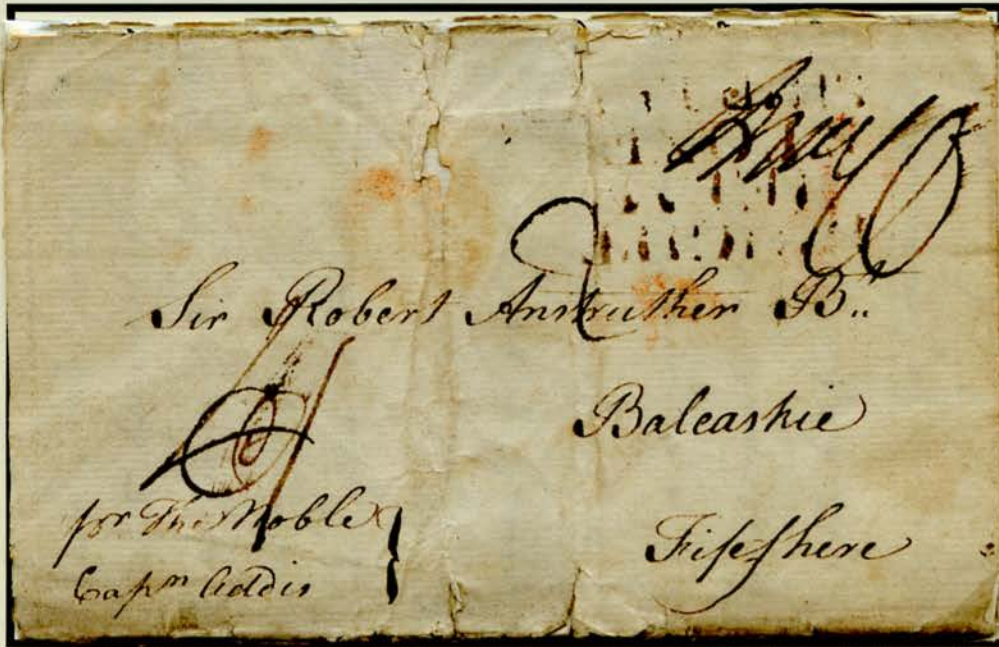 Sir Robert Anstruther Bt
Balcaskie
Fifeshere
pr The Noble
Capn Addis